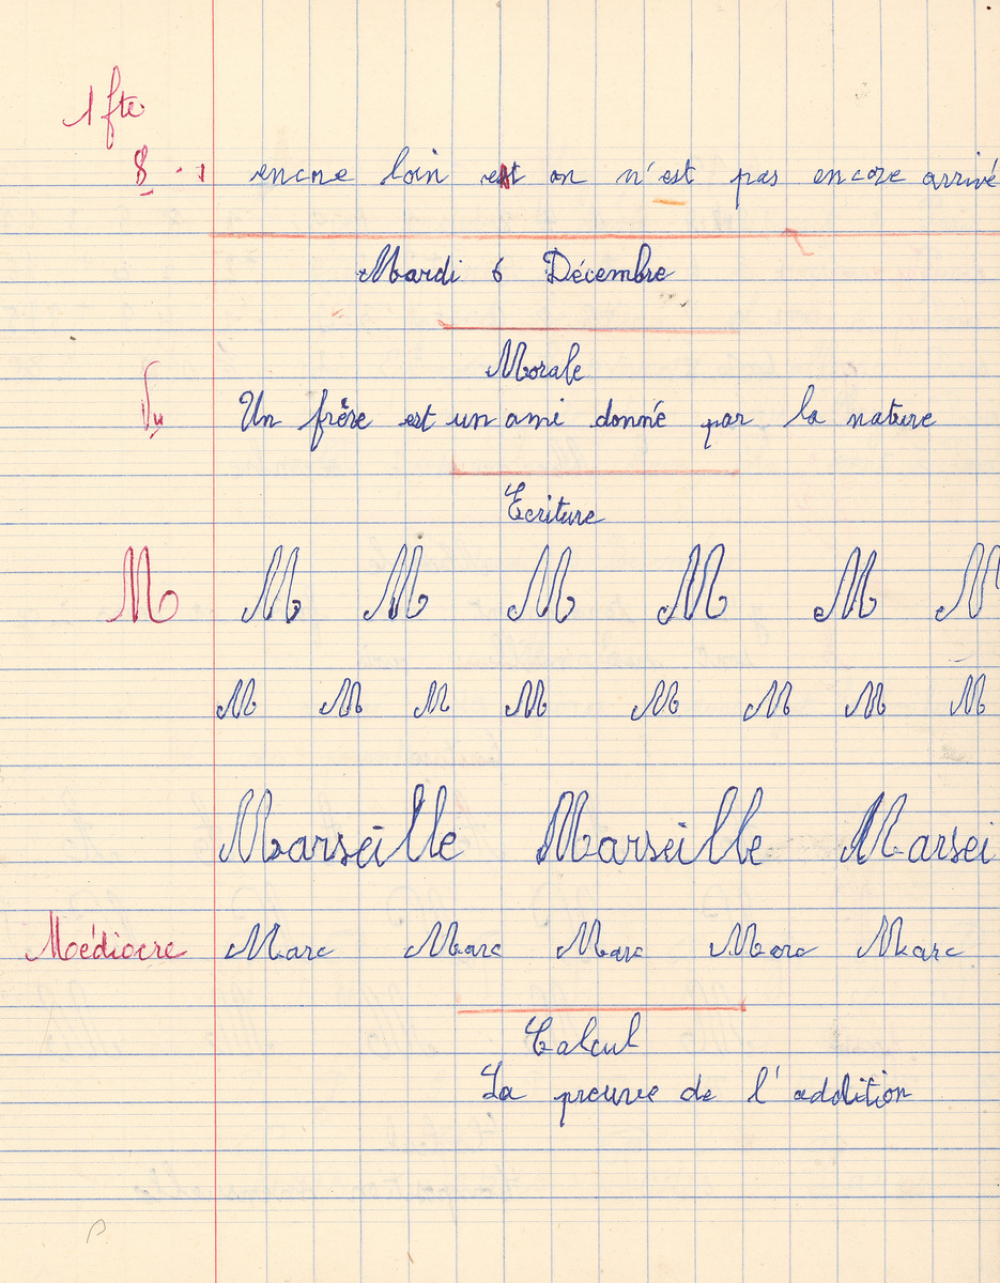 1 fte
8 encore loin est on n'est pas encore arrivé
Mardi 6 Décembre
Morale
Vu Un frère est un ami donné par la nature
Ecriture
M M M M M M M
M M M M M M M M
Marseille Marseille Marsei
Médiocre Marc Marc Marc Marc Marc
Calcul
La preuve de l'addition